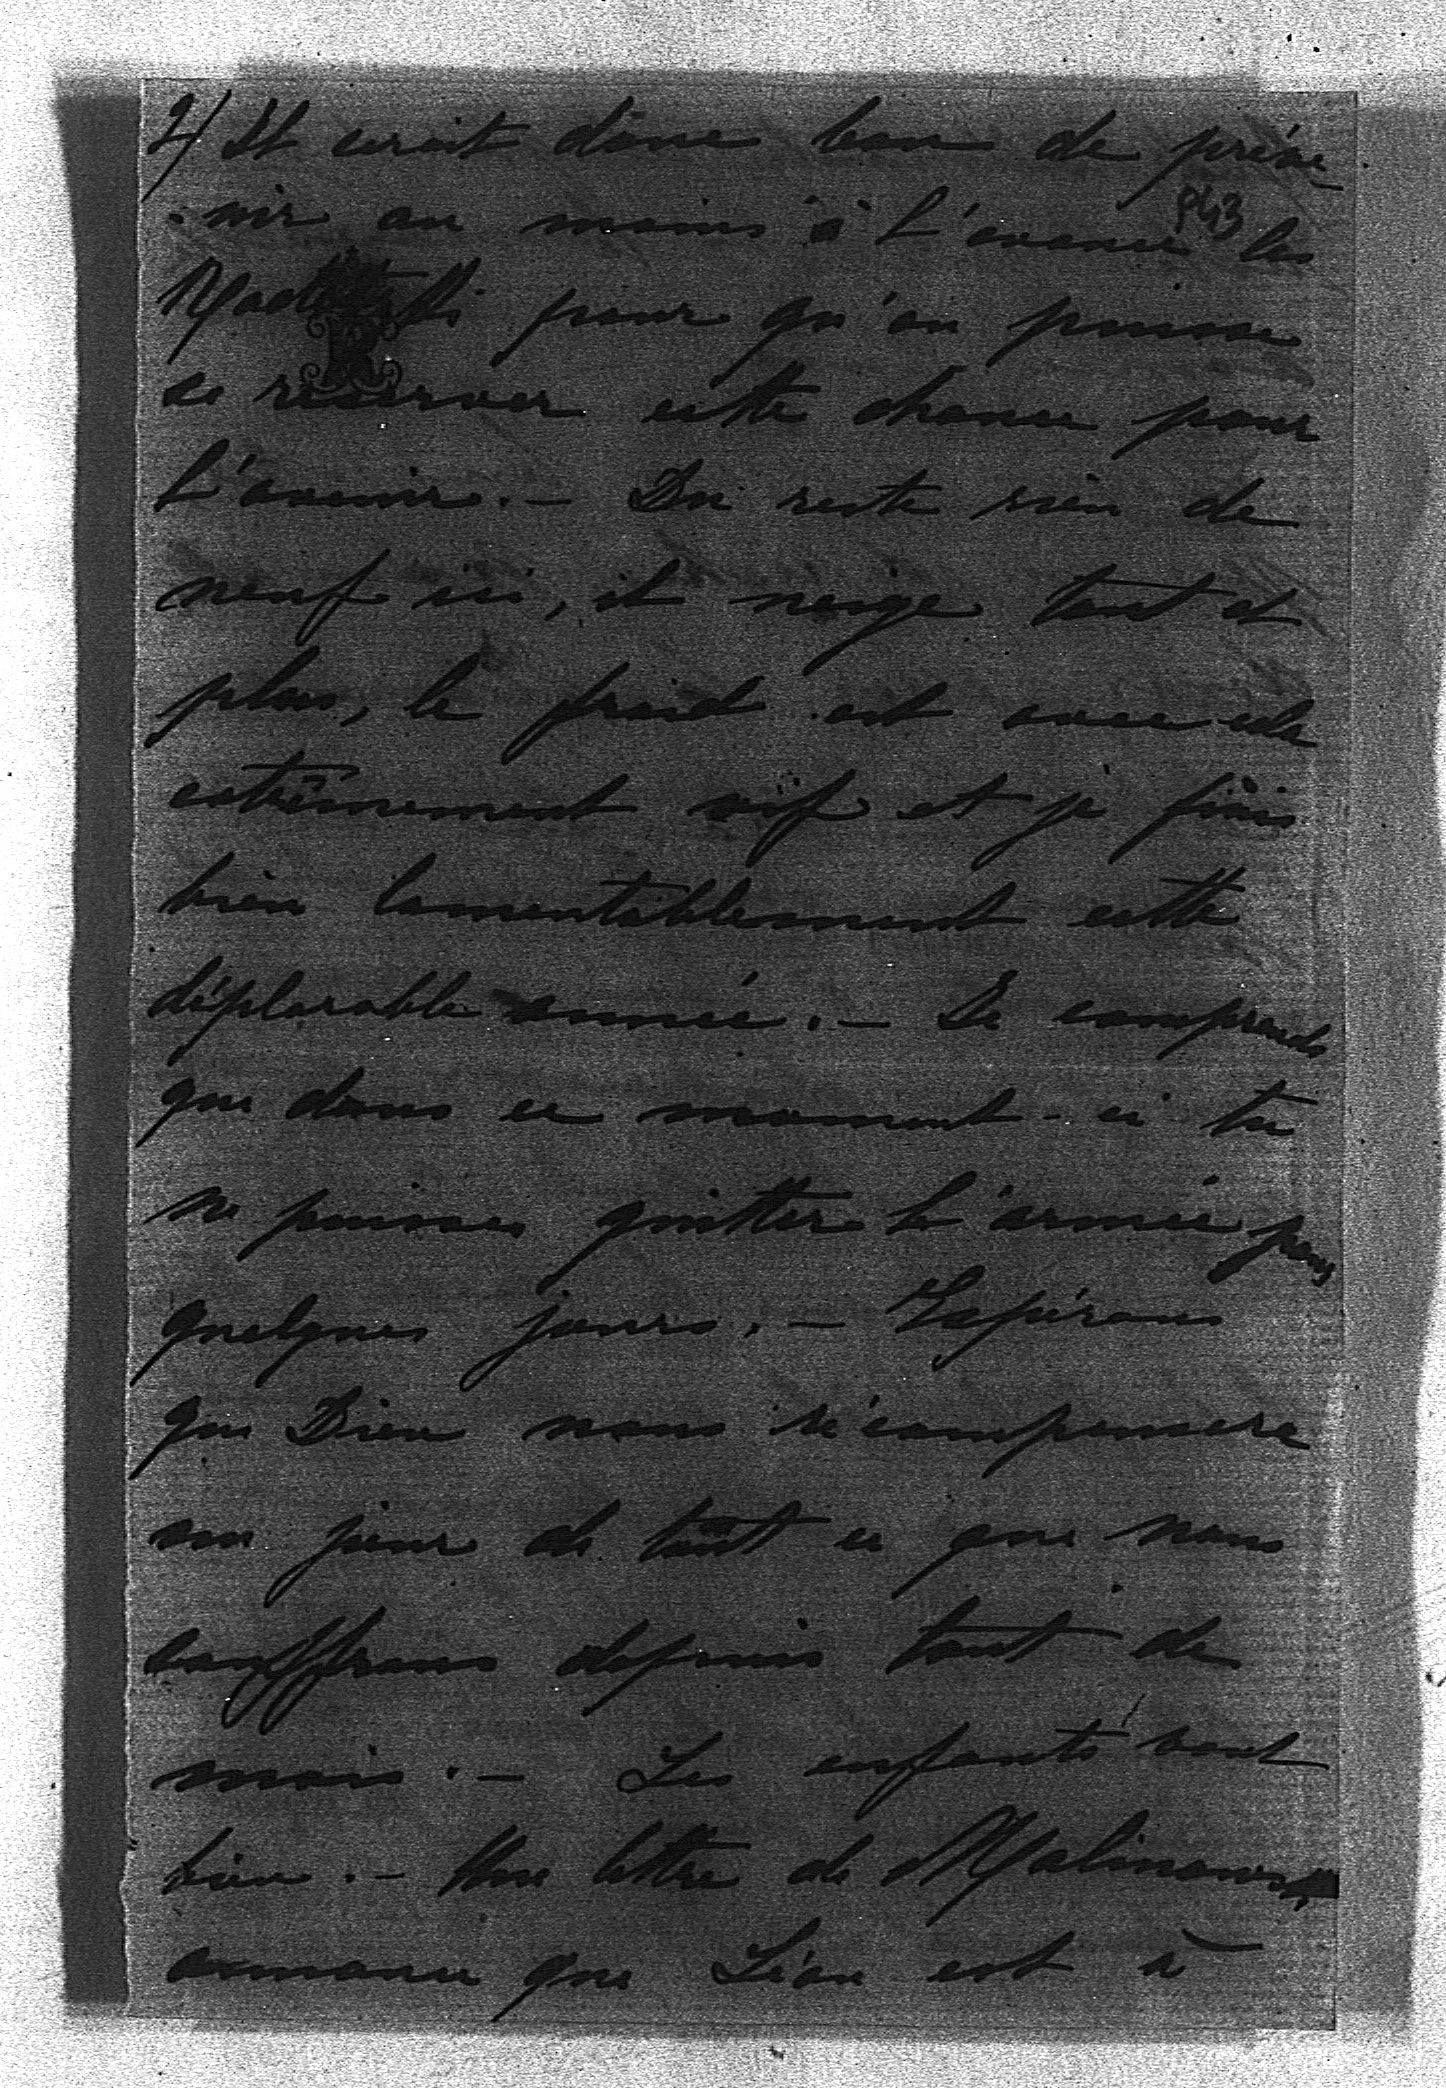 2/ Il serait donc bon de préve
-nir au moins à l'avenir les
pour qu'on puisse
se réserver cette chance pour
l'avenir. — Du reste rien de
neuf ici, il neige tant et
plus, le froid est avec cela
extrêmement vif et je finis
bien lamentablement cette
déplorable année. — Je comprends
que dans ce moment-ci tu
ne puisses quitter l'armée pour
quelques jours. — Espérons
que Dieu nous récompensera
un jour de tout ce que nous
souffrons depuis tant de
mois. — Les enfants vont
bien. — Une lettre de
annonce que Léon est à